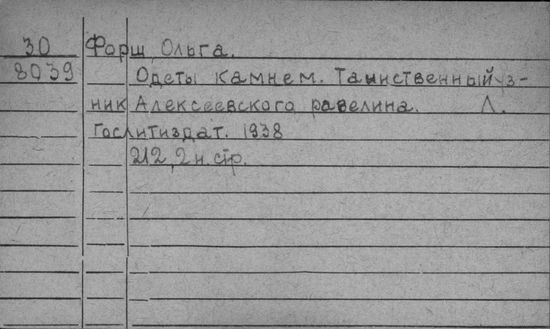 30 Форш Ольга.
8039 Одеты камнем. Таинственный з-
ник Алексеевского равелина. Л.
Гослитиздат. 1938
212, 2 н. стр.